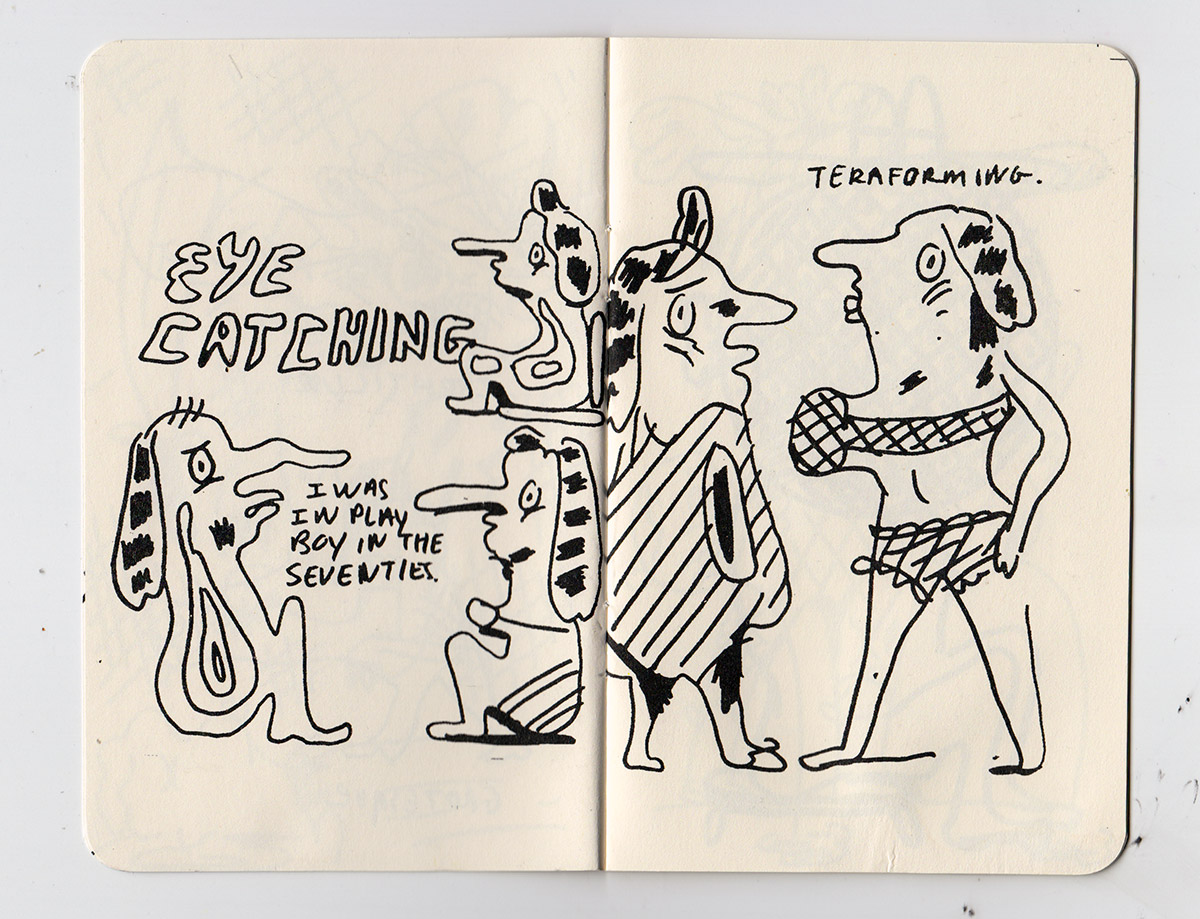 EYE
CATCHING
I WAS
IN PLAY
BOY IN THE
SEVENTIES.
TERAFORMING.